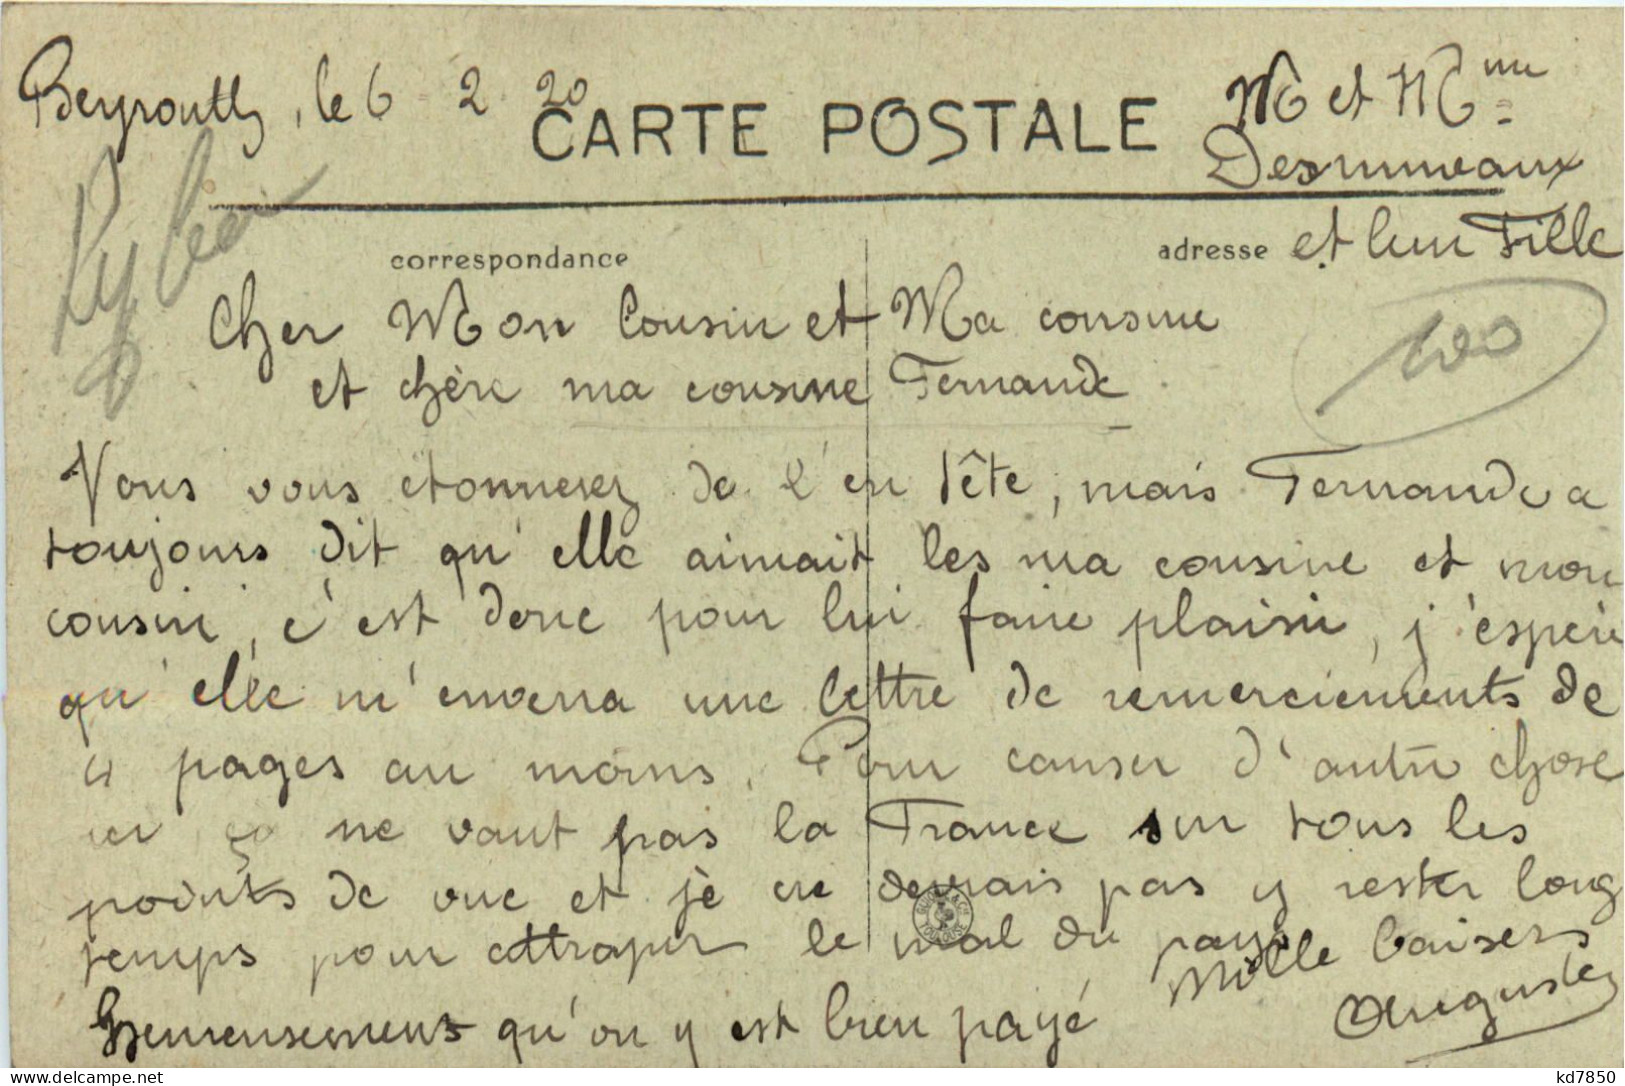 Beyrouth, le 6 2 20
CARTE POSTALE
M et Mme
Desrumeaux
et leur Fille
correspondance
adresse
100
Cher Mon Cousin et Ma cousine
et chère ma cousine Fernande
Vous vous étonnerez de l'en tête, mais Fernande a
toujours dit qu'elle aimait les ma cousine et mon
cousin, c'est donc pour lui faire plaisir, j'espère
qu'elle m'enverra une lettre de remerciements de
4 pages au moins. Pour causer d'autre chose
ici ça ne vaut pas la France sur tous les
points de vue et je ne devrais pas y rester long
temps pour attraper le mal du pays
Heureusement qu'on y est bien payé
Mille baisers
Auguste
kd7850